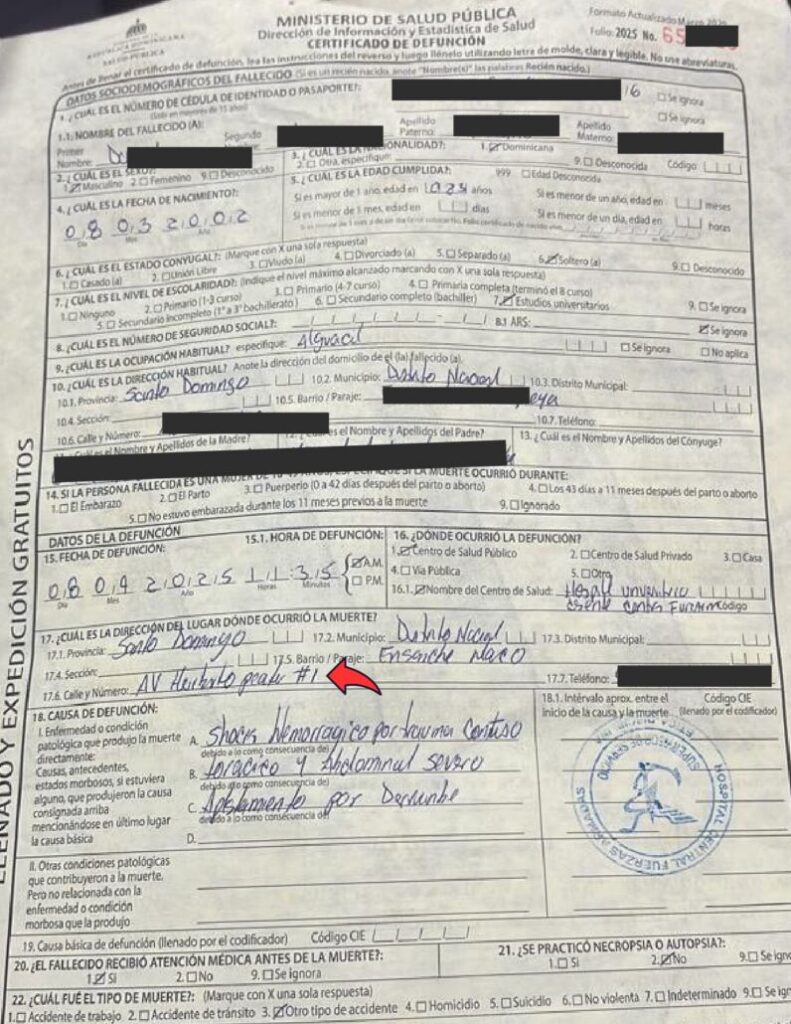 REPÚBLICA DOMINICANA
SALUD PÚBLICA
MINISTERIO DE SALUD PÚBLICA
Dirección de Información y Estadística de Salud
CERTIFICADO DE DEFUNCIÓN
Formato Actualizado Marzo
Folio: 2025 No. 65
Antes de llenar el certificado de defunción, lea las instrucciones del reverso y luego llénelo utilizando letra de molde, clara y legible. No use abreviaturas.
DATOS SOCIODEMOGRÁFICOS DEL FALLECIDO (Si es un recién nacido, anote "Nombre(s)" las palabras Recién nacido.)
1. ¿CUÁL ES EL NÚMERO DE CÉDULA DE IDENTIDAD O PASAPORTE?: 16 □ Se ignora
1.1: NOMBRE DEL FALLECIDO (A): Primer Nombre: Segundo Apellido Paterno: Apellido Materno: □ Se ignora
2. ¿CUÁL ES EL SEXO?: 1. ☑ Masculino 2. □ Femenino 9. □ Desconocido
3. ¿CUÁL ES LA NACIONALIDAD?: 1. ☑ Dominicana
2. □ Otra, especifique: 9. □ Desconocida Código
4. ¿CUÁL ES LA FECHA DE NACIMIENTO?:
08 03 2002
Día Mes Año
5. ¿CUÁL ES LA EDAD CUMPLIDA?: 999 □ Edad Desconocida
Si es mayor de 1 año, edad en 023 años Si es menor de un año, edad en meses
Si es menor de 1 mes, edad en días Si es menor de un día, edad en horas
6. ¿CUÁL ES EL ESTADO CONYUGAL?: (Marque con X una sola respuesta)
1. □ Casado (a) 2. □ Unión Libre 3. □ Viudo (a) 4. □ Divorciado (a) 5. □ Separado (a) 6. ☑ Soltero (a) 9. □ Desconocido
7. ¿CUÁL ES EL NIVEL DE ESCOLARIDAD?: (Indique el nivel máximo alcanzado marcando con X una sola respuesta)
1. □ Ninguno 2. □ Primario (1-3 curso) 3. □ Primario (4-7 curso) 4. □ Primaria completa (terminó el 8 curso)
5. □ Secundario incompleto (1° a 3° bachillerato) 6. □ Secundario completo (bachiller) 7. ☑ Estudios universitarios 9. □ Se ignora
8. ¿CUÁL ES EL NÚMERO DE SEGURIDAD SOCIAL?: 8.1 ARS: ☑ Se ignora
9. ¿CUÁL ES LA OCUPACIÓN HABITUAL? especifique: Alguacil □ Se ignora □ No aplica
10. ¿CUÁL ES LA DIRECCIÓN HABITUAL? Anote la dirección del domicilio de el (la) fallecido (a).
10.1. Provincia: Santo Domingo 10.2. Municipio: Distrito Nacional 10.3. Distrito Municipal:
10.4. Sección: 10.5. Barrio / Paraje: eya
10.6. Calle y Número: 10.7. Teléfono:
es el Nombre y Apellidos de la Madre? es el Nombre y Apellidos del Padre? 13. ¿Cuál es el Nombre y Apellidos del Cónyuge?
14. SI LA PERSONA FALLECIDA ES UNA MUJER SI LA MUERTE OCURRIÓ DURANTE:
1. □ El Embarazo 2. □ El Parto 3. □ Puerperio (0 a 42 días después del parto o aborto) 4. □ Los 43 días a 11 meses después del parto o aborto
5. □ No estuvo embarazada durante los 11 meses previos a la muerte 9. □ Ignorado
DATOS DE LA DEFUNCIÓN
15. FECHA DE DEFUNCIÓN: 15.1. HORA DE DEFUNCIÓN:
08 04 2025 11:35 ☑ A.M. □ P.M.
Día Mes Año Horas Minutos
16. ¿DÓNDE OCURRIÓ LA DEFUNCIÓN?
1. ☑ Centro de Salud Público 2. □ Centro de Salud Privado 3. □ Casa
4. □ Vía Pública 5. □ Otro
16.1. ☑ Nombre del Centro de Salud: Código
17. ¿CUÁL ES LA DIRECCIÓN DEL LUGAR DÓNDE OCURRIÓ LA MUERTE?
17.1. Provincia: Santo Domingo 17.2. Municipio: Distrito Nacional 17.3. Distrito Municipal:
17.4. Sección: 17.5. Barrio / Paraje: Ensanche Naco
17.6. Calle y Número: AV #1 17.7. Teléfono:
18. CAUSA DE DEFUNCIÓN:
I. Enfermedad o condición patológica que produjo la muerte directamente:
Causas, antecedentes, estados morbosos, si estuviera alguno, que produjeron la causa consignada arriba mencionándose en último lugar la causa básica
A. Shock Hemorragico por trauma Contuso
debido a (o como consecuencia de)
B. toracico y Abdominal severo
debido a (o como consecuencia de)
C. por Derrumbe
debido a (o como consecuencia de)
D.
18.1. Intérvalo aprox. entre el inicio de la causa y la muerte
Código CIE (llenado por el codificador)
HOSPITAL CENTRAL FUERZAS ARMADAS
II. Otras condiciones patológicas que contribuyeron a la muerte. Pero no relacionada con la enfermedad o condición morbosa que la produjo
19. Causa básica de defunción (llenado por el codificador) Código CIE
20. ¿EL FALLECIDO RECIBIÓ ATENCIÓN MÉDICA ANTES DE LA MUERTE?:
1. ☑ Si 2. □ No 9. □ Se ignora
21. ¿SE PRACTICÓ NECROPSIA O AUTOPSIA?:
1. □ Si 2. ☑ No 9. □ Se ignora
22. ¿CUÁL FUÉ EL TIPO DE MUERTE?: (Marque con X una sola respuesta)
1. □ Accidente de trabajo 2. □ Accidente de tránsito 3. ☑ Otro tipo de accidente 4. □ Homicidio 5. □ Suicidio 6. □ No violenta 7. □ Indeterminado 9. □ Se
LLENADO Y EXPEDICIÓN GRATUITOS